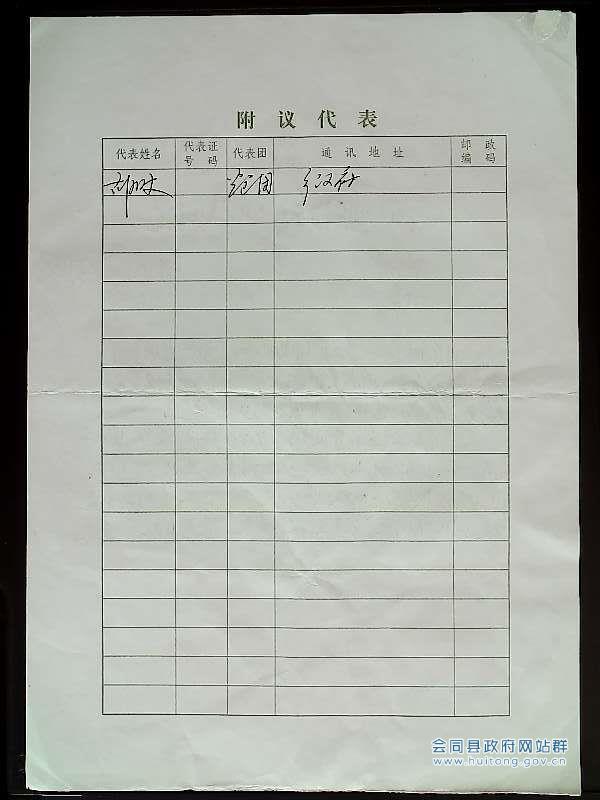 附议代表
代表姓名 代表证号码 代表团 通讯地址 邮政编码
会同县政府网站群
www.huitong.gov.cn